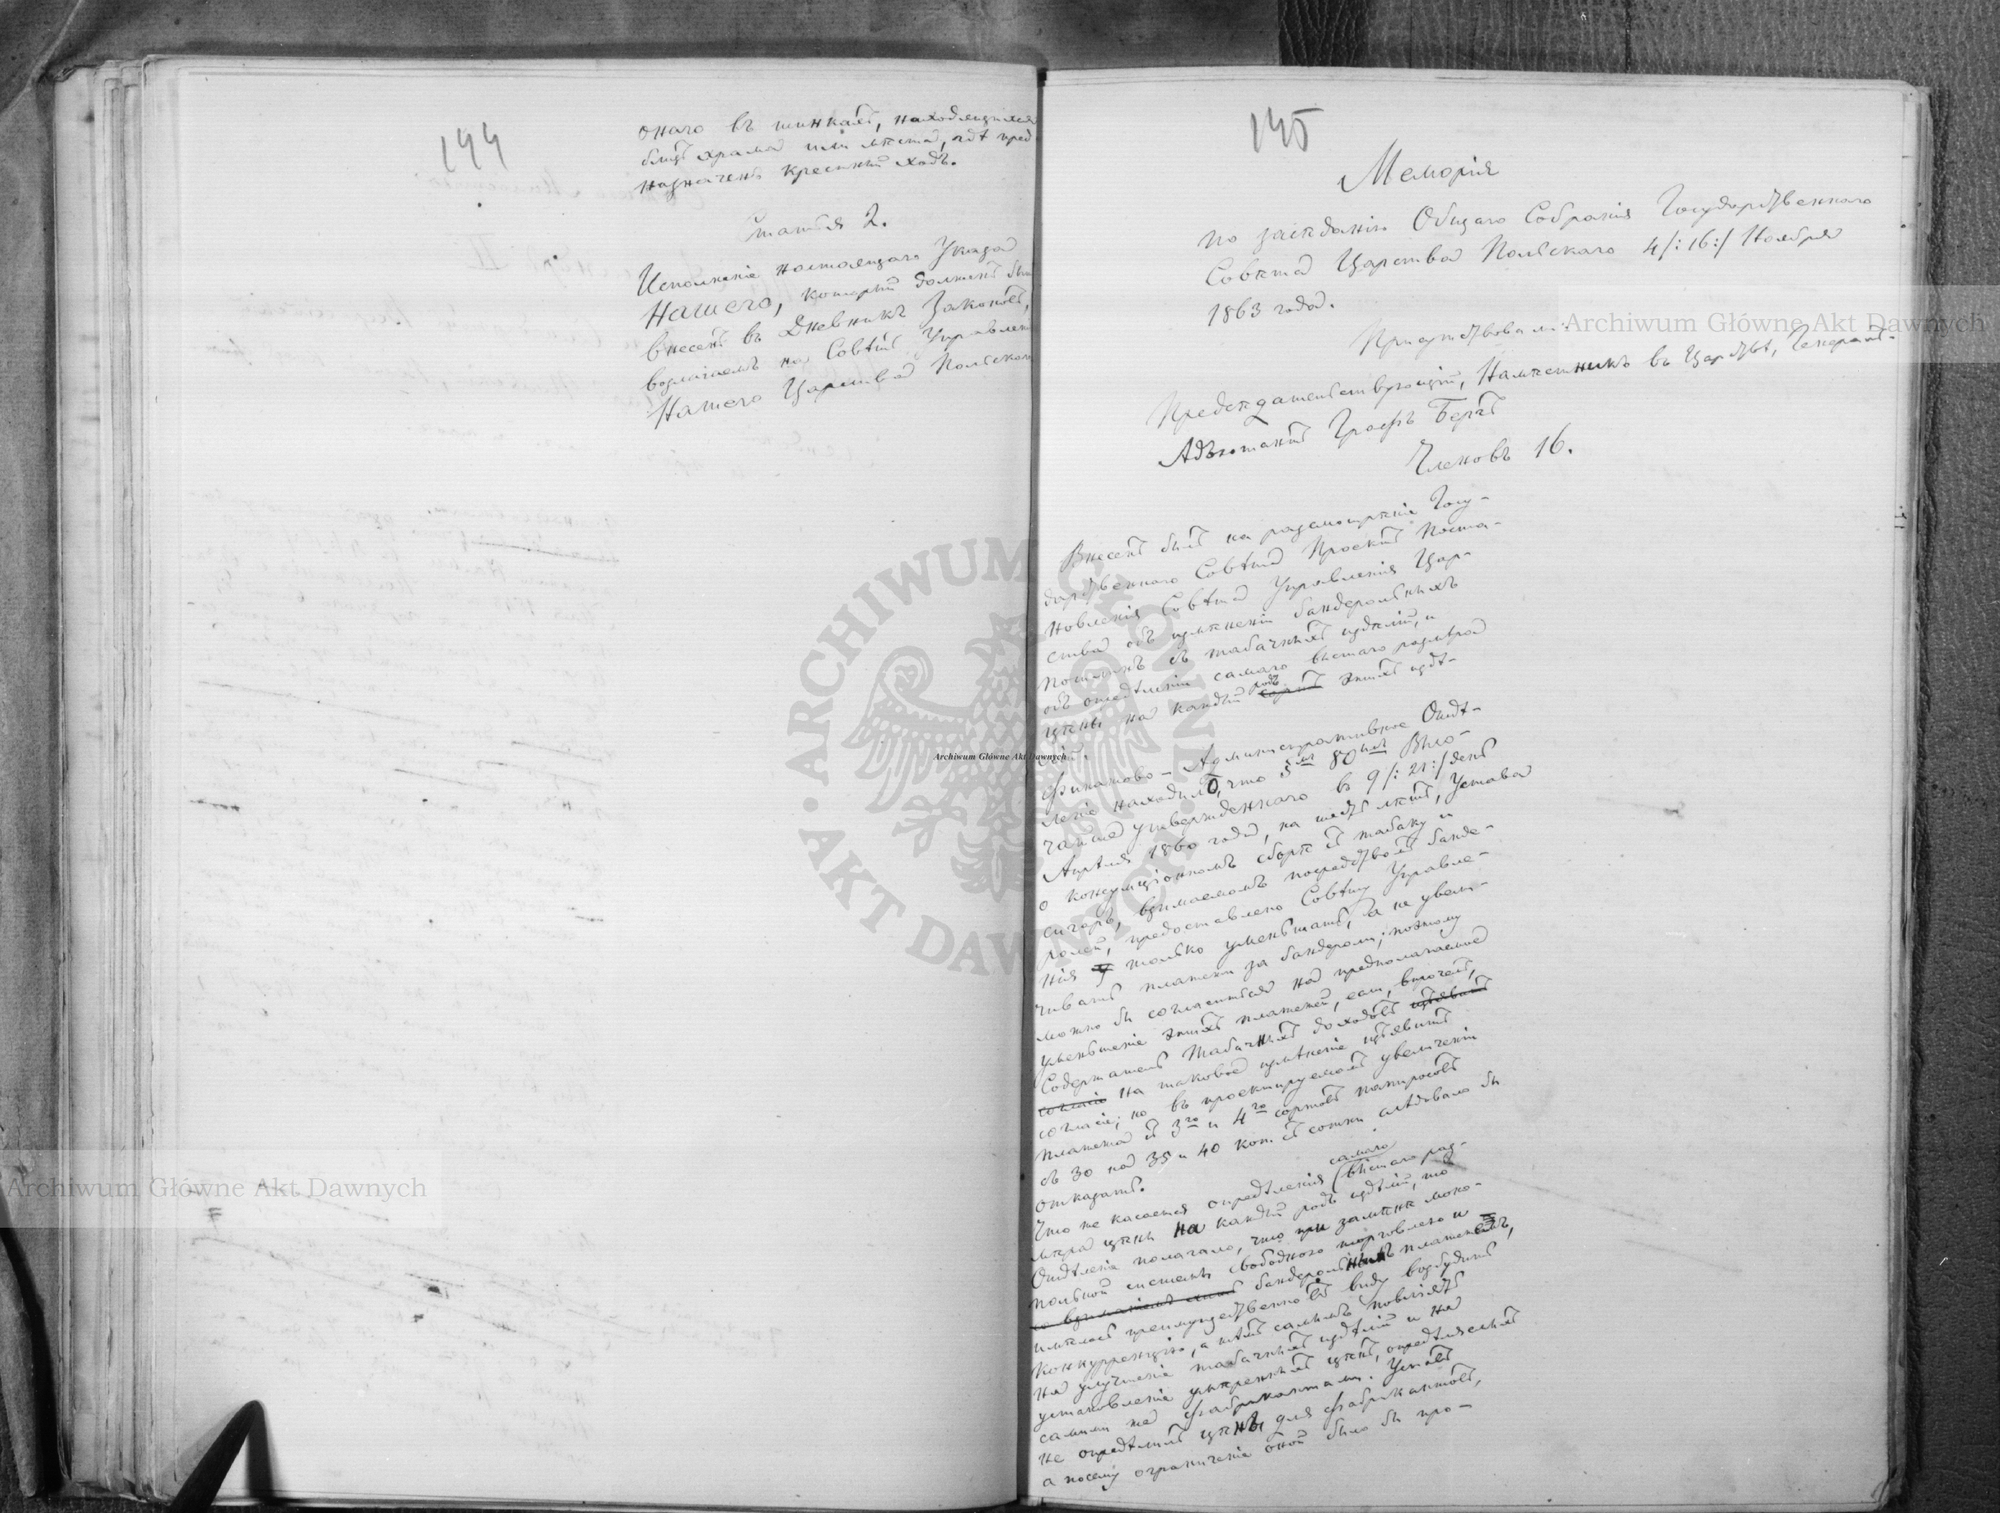 144
онаго въ шинкахъ, находящихся
близъ храма или мѣста, гдѣ пред-
назначенъ крестный ходъ.
Статья 2.
Исполненіе настоящаго Указа
Нашего, который долженъ быть
внесенъ въ Дневникъ Законовъ,
возлагаемъ на Совѣтъ Управленія
Нашего Царства Польскаго
145
Меморія
по засѣданію Общаго Собранія Государственнаго
Совѣта Царства Польскаго 4/:16:/ Ноября
1863 года.
Присутствовали:
Предсѣдательствующій, Намѣстникъ въ Царствѣ, Генералъ-
Адъютантъ Графъ Бергъ
Членовъ 16.
Внесенъ былъ на разсмотрѣніе Госу-
дарственнаго Совѣта Проектъ Поста-
новленія Совѣта Управленія Цар-
ства объ измѣненіи бандерольныхъ
пошлинъ съ табачныхъ издѣлій, и
объ опредѣленіи самаго высшаго размѣра
цѣны на каждый родъ этихъ издѣ-
лій.
Финансово-Административное Отдѣ-
леніе находило, что 80 Высо-
чайше утвержденнаго въ 9/:21:/ день
Апрѣля 1860 года, на шесть лѣтъ, Устава
о консумціонномъ сборѣ съ табаку и
сигаръ, взимаемомъ посредствомъ банде-
ролей, предоставлено Совѣту Управле-
нія только уменьшать, а не увели-
чивать платежи за бандероли; поэтому
можно бы согласиться на предполагаемое
уменьшеніе этихъ платежей, если, впрочемъ,
Содержатель Табачныхъ доходовъ изъявитъ
согласіе на таковое измѣненіе изъявитъ
согласіе; но въ проектируемомъ увеличеніи
платежа съ 3го и 4го сортовъ папиросовъ
съ 30 на 35 и 40 коп. съ сотни слѣдовало бы
отказать.
Что же касается опредѣленія самаго высшаго раз-
мѣра цѣны на каждый родъ издѣлій, то
Отдѣленіе полагало, что при замѣнѣ моно-
польной системы свободною торговлею и
бандерольнымъ платежемъ,
имѣлось преимущественно въ виду возбудить
конкурренцію, а тѣмъ самымъ повліять
на улучшеніе табачныхъ издѣлій и на
установленіе умѣренныхъ цѣнъ, опредѣляемыхъ
самими же фабрикантами. Уставъ
не опредѣлилъ цѣны для фабрикантовъ,
а посему ограниченіе оной было бы про-
Archiwum Główne Akt Dawnych
Archiwum Główne Akt Dawnych
Archiwum Główne Akt Dawnych
ARCHIWUM GŁÓWNE AKT DAWNYCH